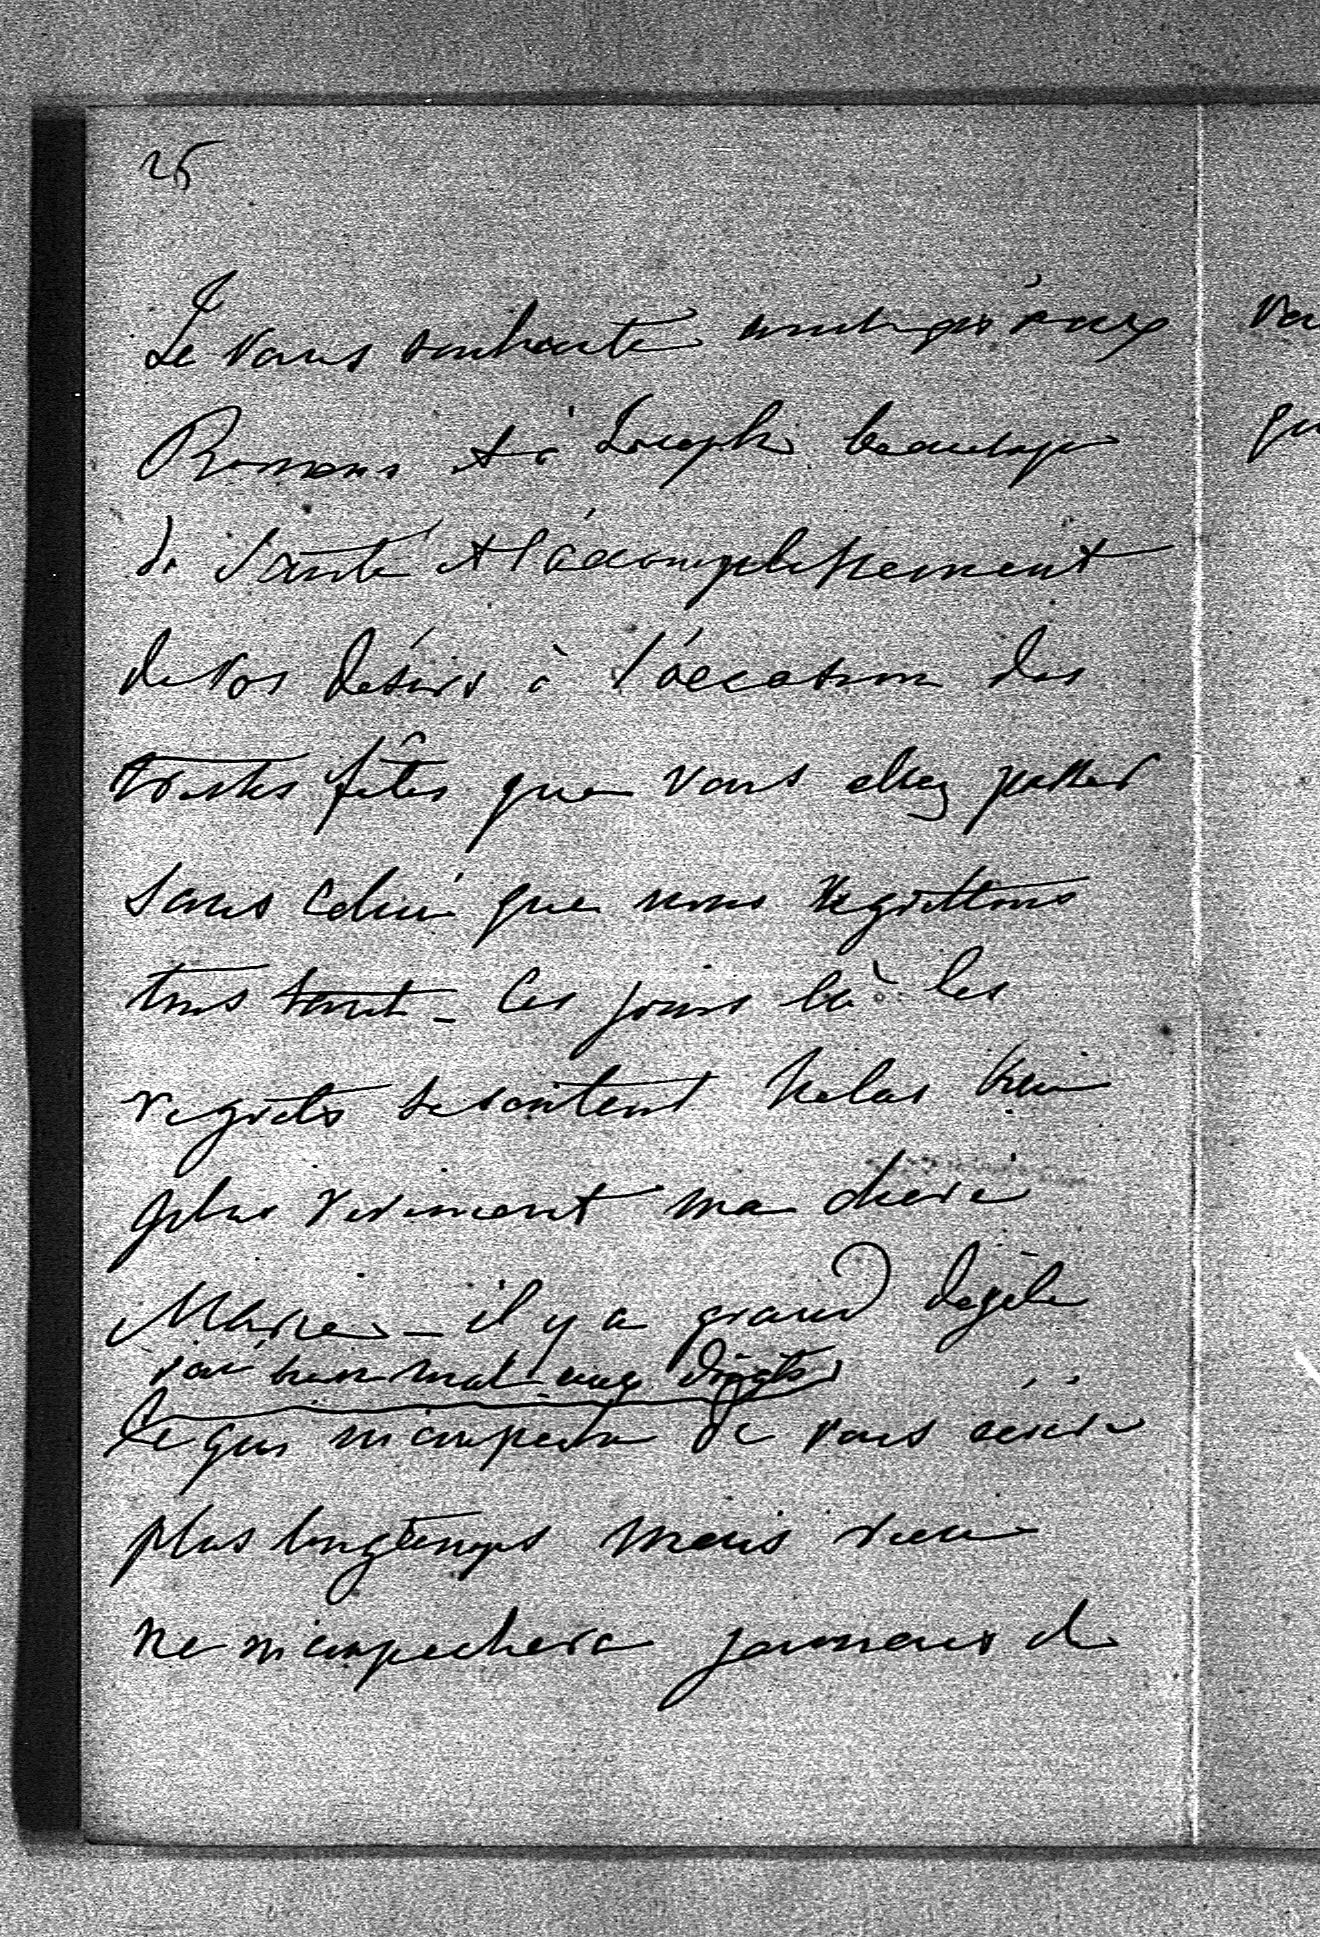 25
Je vous souhaite ainsi qu'aux
Romans et à Joseph beaucoup
de Santé et l'accomplissement
de vos désirs à l'occasion des
tristes fêtes que vous allez passer
sans celui que nous regrettons
tous tant - Ces jours là les
regrets se sentent helas bien
plus vivement ma chere
Marie - il y a grand dégèle
j'ai bien mal aux doigts
Ce qui m'empeche de vous écrire
plus longtemps mais rien
ne m'empechera jamais de